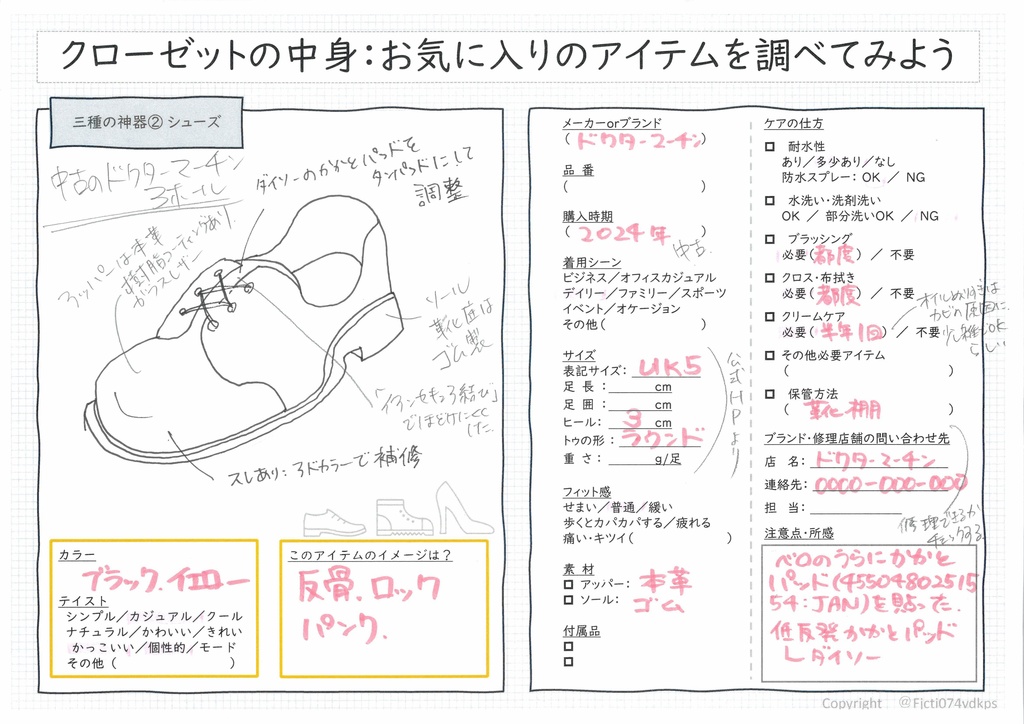 クローゼットの中身：お気に入りのアイテムを調べてみよう
三種の神器② シューズ
中古のドクターマーチン
3ホール
ダイソーのかかとパッドを
タンパッドにして
調整
アッパーは本革
樹脂コーティングあり
ガラスレザー
ソール
靴底は
ゴム製
「イアンセキュア結び」
でほどけにくく
した
スレあり：アドカラーで補修
カラー
ブラック．イエロー
テイスト
シンプル／カジュアル／クール
ナチュラル／かわいい／きれい
かっこいい／個性的／モード
その他（　　　　　　）
このアイテムのイメージは？
反骨．ロック
パンク．
メーカーorブランド
（ドクターマーチン）
品 番
（　　　　　　）
購入時期
（2024年　　）
中古．
着用シーン
ビジネス／オフィスカジュアル
デイリー／ファミリー／スポーツ
イベント／オケージョン
その他（　　　　　　）
サイズ
表記サイズ：UK5
足 長：　　　cm
足 囲：　　　cm
ヒール：3　cm
トゥの形：ラウンド
重 さ：　　　g/足
公式HPより
フィット感
せまい／普通／緩い
歩くとカパカパする／疲れる
痛い・キツイ（　　　　　　）
素 材
□ アッパー：本革
□ ソール：ゴム
付属品
□
□
ケアの仕方
□ 耐水性
あり／多少あり／なし
防水スプレー：OK ／ NG
□ 水洗い・洗剤洗い
OK ／ 部分洗いOK ／ NG
□ ブラッシング
必要（都度）／ 不要
□ クロス・布拭き
必要（都度）／ 不要
□ クリームケア
必要（半年1回）／ 不要
オイルぬりすぎは
カビの原因に．
少し雑でOK
らしい
□ その他必要アイテム
（　　　　　　）
□ 保管方法
（靴棚　　　　）
ブランド・修理店舗の問い合わせ先
店 名：ドクターマーチン
連絡先：0000-000-000
担 当：
修理できるか
チェックする
注意点・所感
ベロのうらにかかと
パッド(45504802515
54:JAN)を貼った．
低反発かかとパッド
└ダイソー
Copyright ＠Fjcti074vdkps